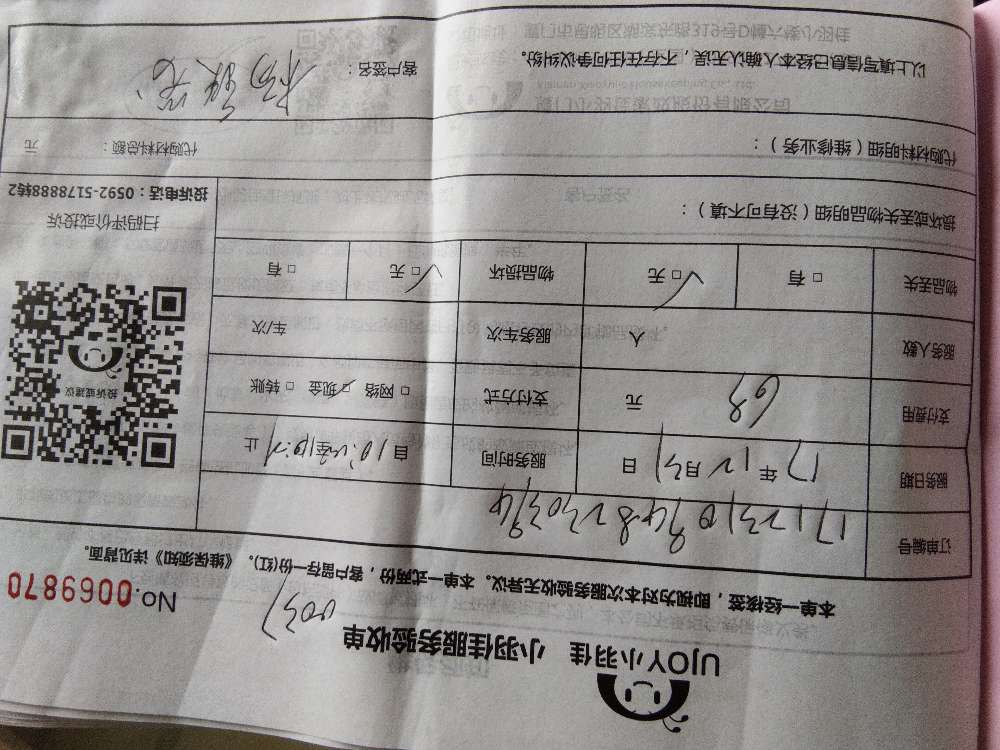 UJOY小羽佳 小羽佳服务验收单
0037
本单一经接签，即视为对本次服务验收无异议。本单一式两份，客户留存一份(红)。《维保须知》详见背面。
No. 0069870
订单编号
服务日期 17年12月31日 服务时间 自 至 止
支付费用 63 元 支付方式 □网络 □现金 □转账
服务人数 人 服务车次 车/次
物品丢失 □有 □无 物品损坏 □无 □有
投诉或建议
扫码评价或投诉
投诉电话：0592-5178888转2
损坏或丢失物品明细（没有可不填）：
代购材料明细（维修业务）： 代购材料总额： 元
以上填写信息已经本人确认无误，不存在任何争议纠纷。 客户签名：